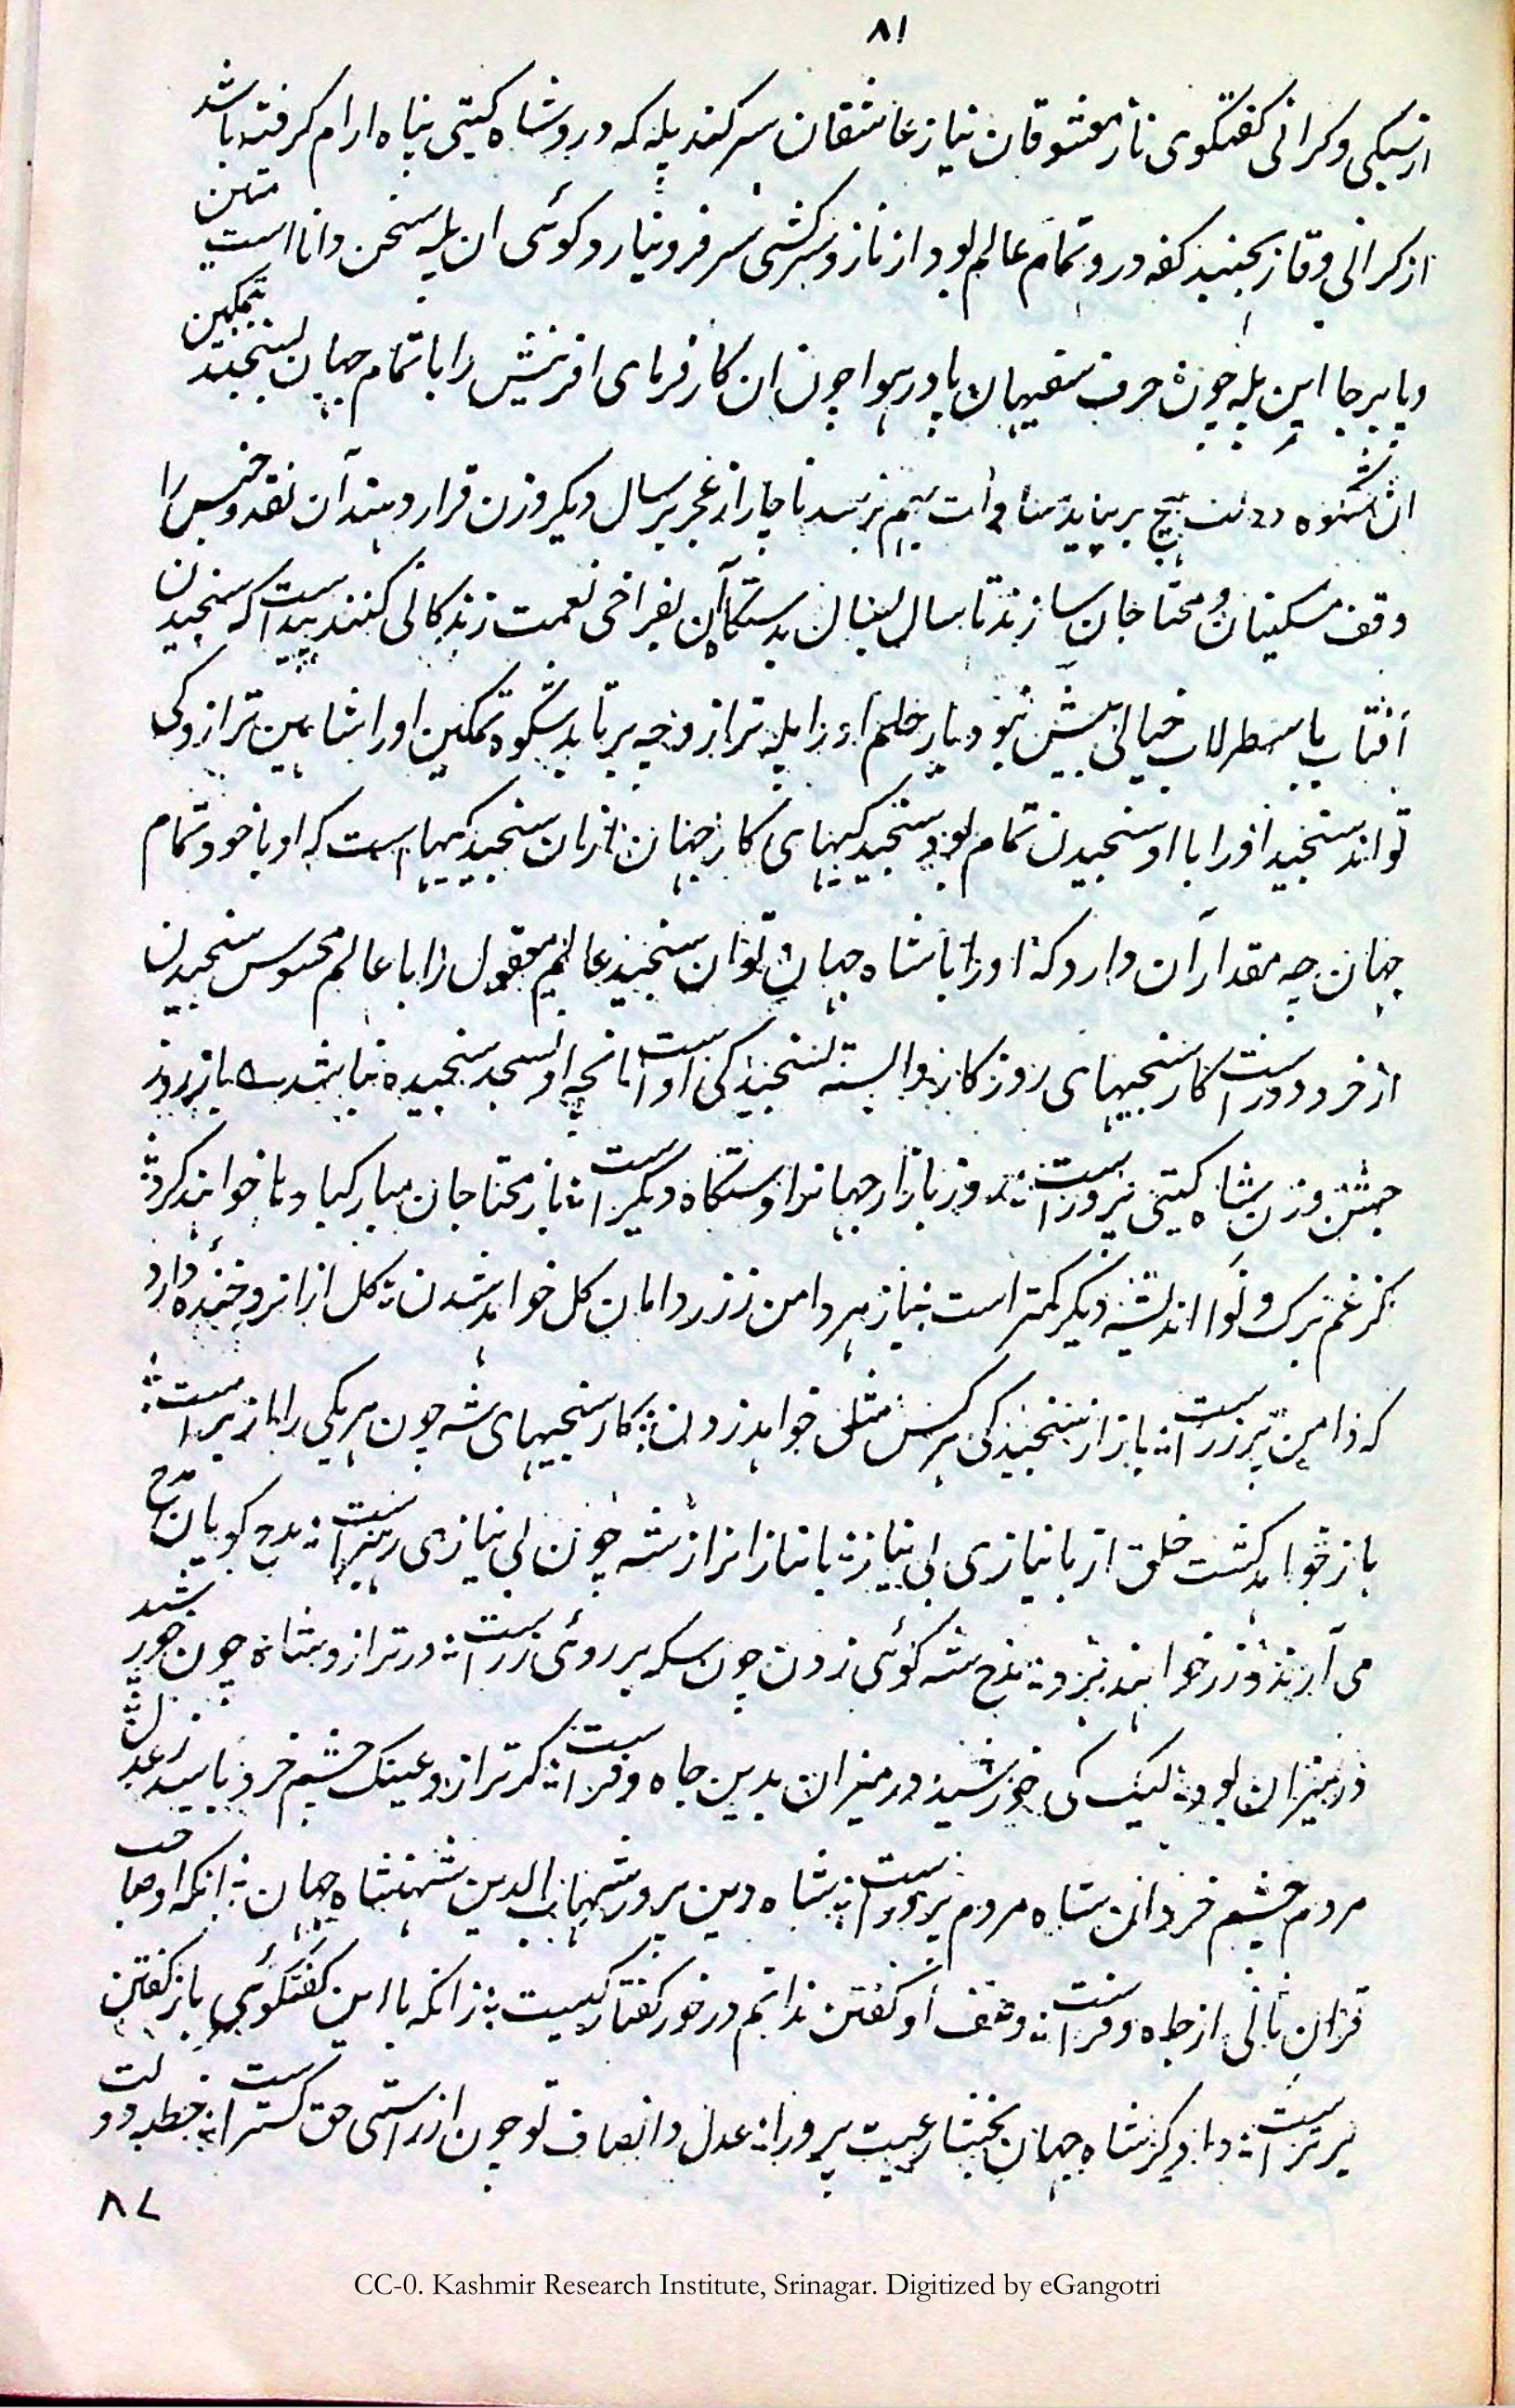 ٨١
از سبکی و کرانی کفتکوی ناز معشوقان نیاز عاشقان سر کند پله که درو شاه کیتی پناه ارام کرفته باشد
از کرانی وقار نجنبد کفه درو تمام عالم بود از ناز و سرکشی سر فرو نیارد کوئی ان پله سخن دانا است متین
و پا برجا این پله چون حرف سفیهان پا در هوا چون ان کار فرمای افرینش را با تمام جهان بسنجند تمکین
ان شکوه دولت هیچ بر نیاید ناچار از عجز بر سال دیکر وزن قرار دهند آن نقد و جنس را
وقف مسکینان و محتاجان سازند تا سال بسال بدستکاه آن بفراخی نعمت زندکانی کنند پیداست که سنجیدن
آفتاب باسطرلاب خیالی بیش نبود بار حلم او را پله ترازو چه برتابد شکوه تمکین او را شاهین ترازو کی
تواند سنجید او را با او سنجیدن تمام بود سنجیدکیهای کار جهان ازان سنجیدکیهاست که او با خود تمام
جهان چه مقدار آن دارد که او را با شاه جهان توان سنجید عالم معقول را با عالم محسوس سنجیدن
از خرد دورست کار سنجیهای روزکار وابسته سنجیدکی اوست انچه او سنجد سنجیده نباشد باز روز
جشن وزن شاه کیتی پرورست روز بازار جهانرا دستکاه دیکرست باز محتاجان مبارکباد با خواهند کرد
کز غم برک و نوا اندیشه دیکر کمتر است باز هر دامن ز زر دامان کل خواهد شدن کل ازانرو خنده دارد
که دامن پر زرست باز از سنجیدکی هر کس مثل خواهد زدن کار سنجیهای شه چون هر یکی را از برست
باز خواهد کشت خلق از بانیازی بی نیاز بانیازانرا ز شه چون بی نیازی رهبرست مدح کویان مدح
می آرند و زر خواهند برد مدح شه کوئی زدن چون سکه بر روی زرست در ترازو شاه چون خور شد
در میزان بود لیک کی خورشید در میزان بدین جاه و فرست کر ترازو عینک چشم خرد باشد ز عدل
مردم چشم خرد ان شاه مردم پرورست شاه دین پرور شهاب الدین شهنشاه جهان انکه او صاحب
قران ثانی از جاه و فرست وصف او کفتن ندانم در خور کفتار کیست زانکه با این کفتکوئی باز کفتن
برترست دادکر شاه جهان بخشا رعیت پرورا عدل و انصاف تو چون از راستی حق کسترست خطبه دولت
٨٢
CC-0. Kashmir Research Institute, Srinagar. Digitized by eGangotri